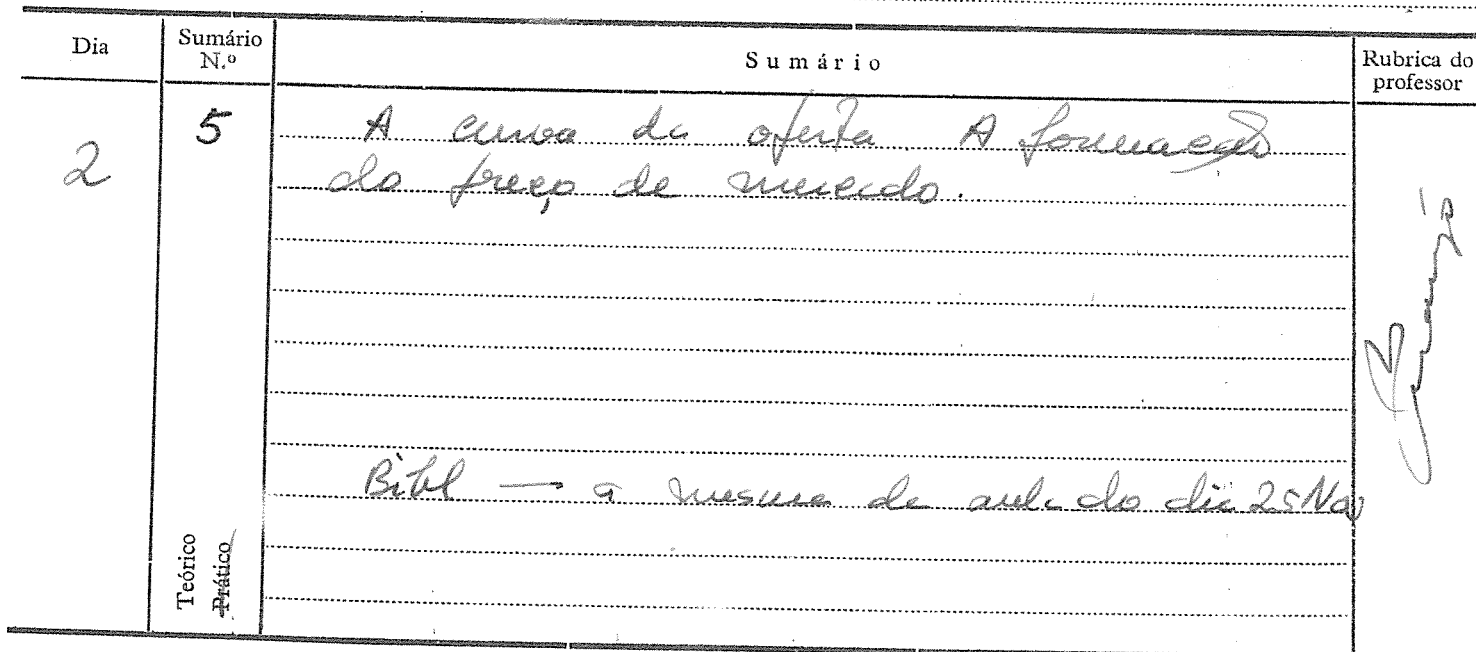 Dia
Sumário
N.º
Sumário
Rubrica do
professor
2
5
A curva da oferta. A formação
do preço de mercado.
Bibl → a mesma da aula do dia 25 Nov
Teórico
Prático